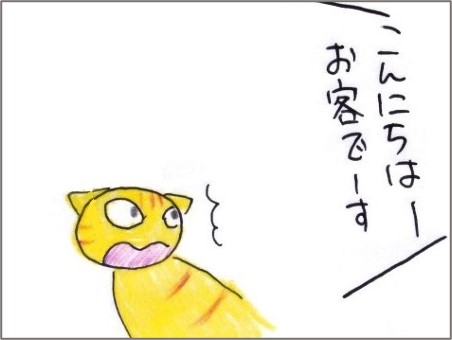 こんにちはー
お客でーす